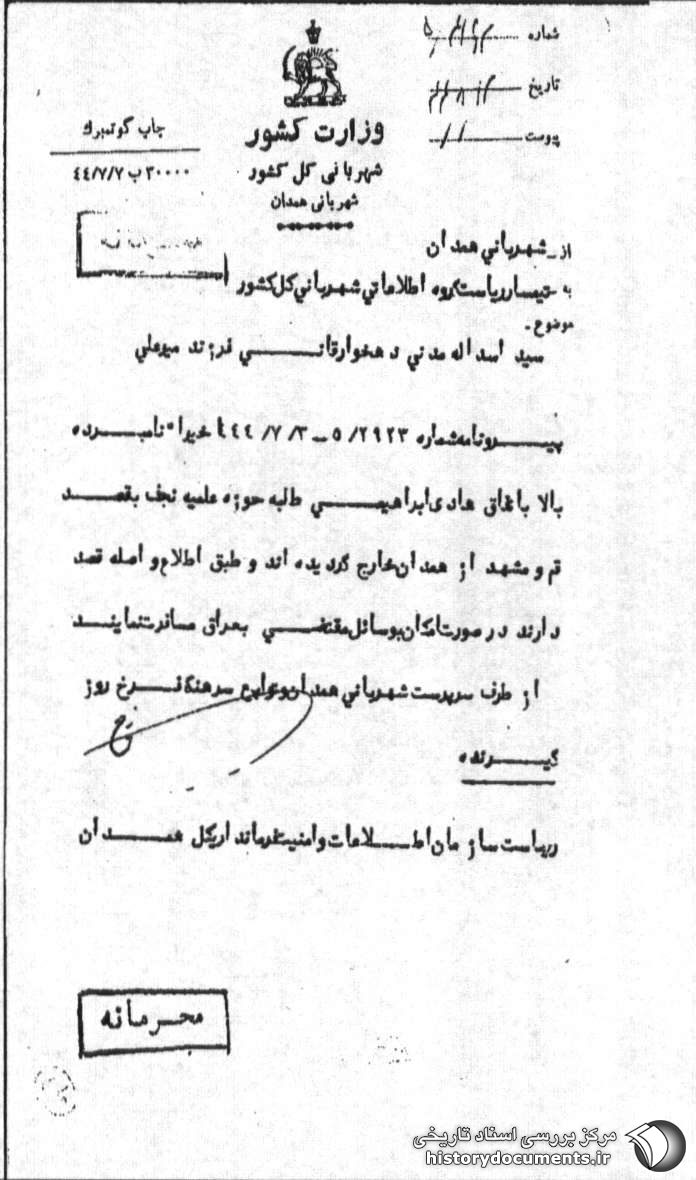 شماره
تاریخ
پیوست
وزارت کشور
شهربانی کل کشور
شهربانی همدان
چاپ گوتمبرک
۳۰۰۰۰ ب ٤٤/٧/٧
از_ شهرباني همدان
به - تیمسار ریاست گروه اطلاعاتي شهرباني کل کشور
موضوع -
سید اسداله مدني دهخوارقانــي فرزند میرعلي
پیــرو نامه شماره ۵/۲۹۲۳ــ ۷/۳/ ٤٤ اخیرا" نامبــرده
بالا باتفاق هادی ابراهیمــي طلبه حوزه علمیه نجف بقصــد
قم و مشهد از همدان خارج گردیده اند و طبق اطلاع واصله قصد
دارند در صورت امکان بوسائل مقتضــي بعراق مسافرت نماینــد
از طرف سرپرست شهرباني همدان سرهنگ فــرخ روز
گیــرنده
ریاست سازمان اطــلاعات و امنیت فرمانداریکل همــدان
محــرمانه
مرکز بررسی اسناد تاریخی
historydocuments.ir